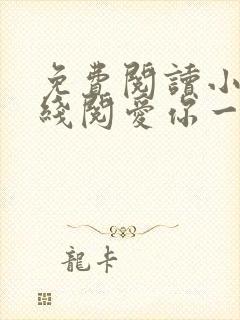 免費閱讀小
綫閱愛你一
龍卡